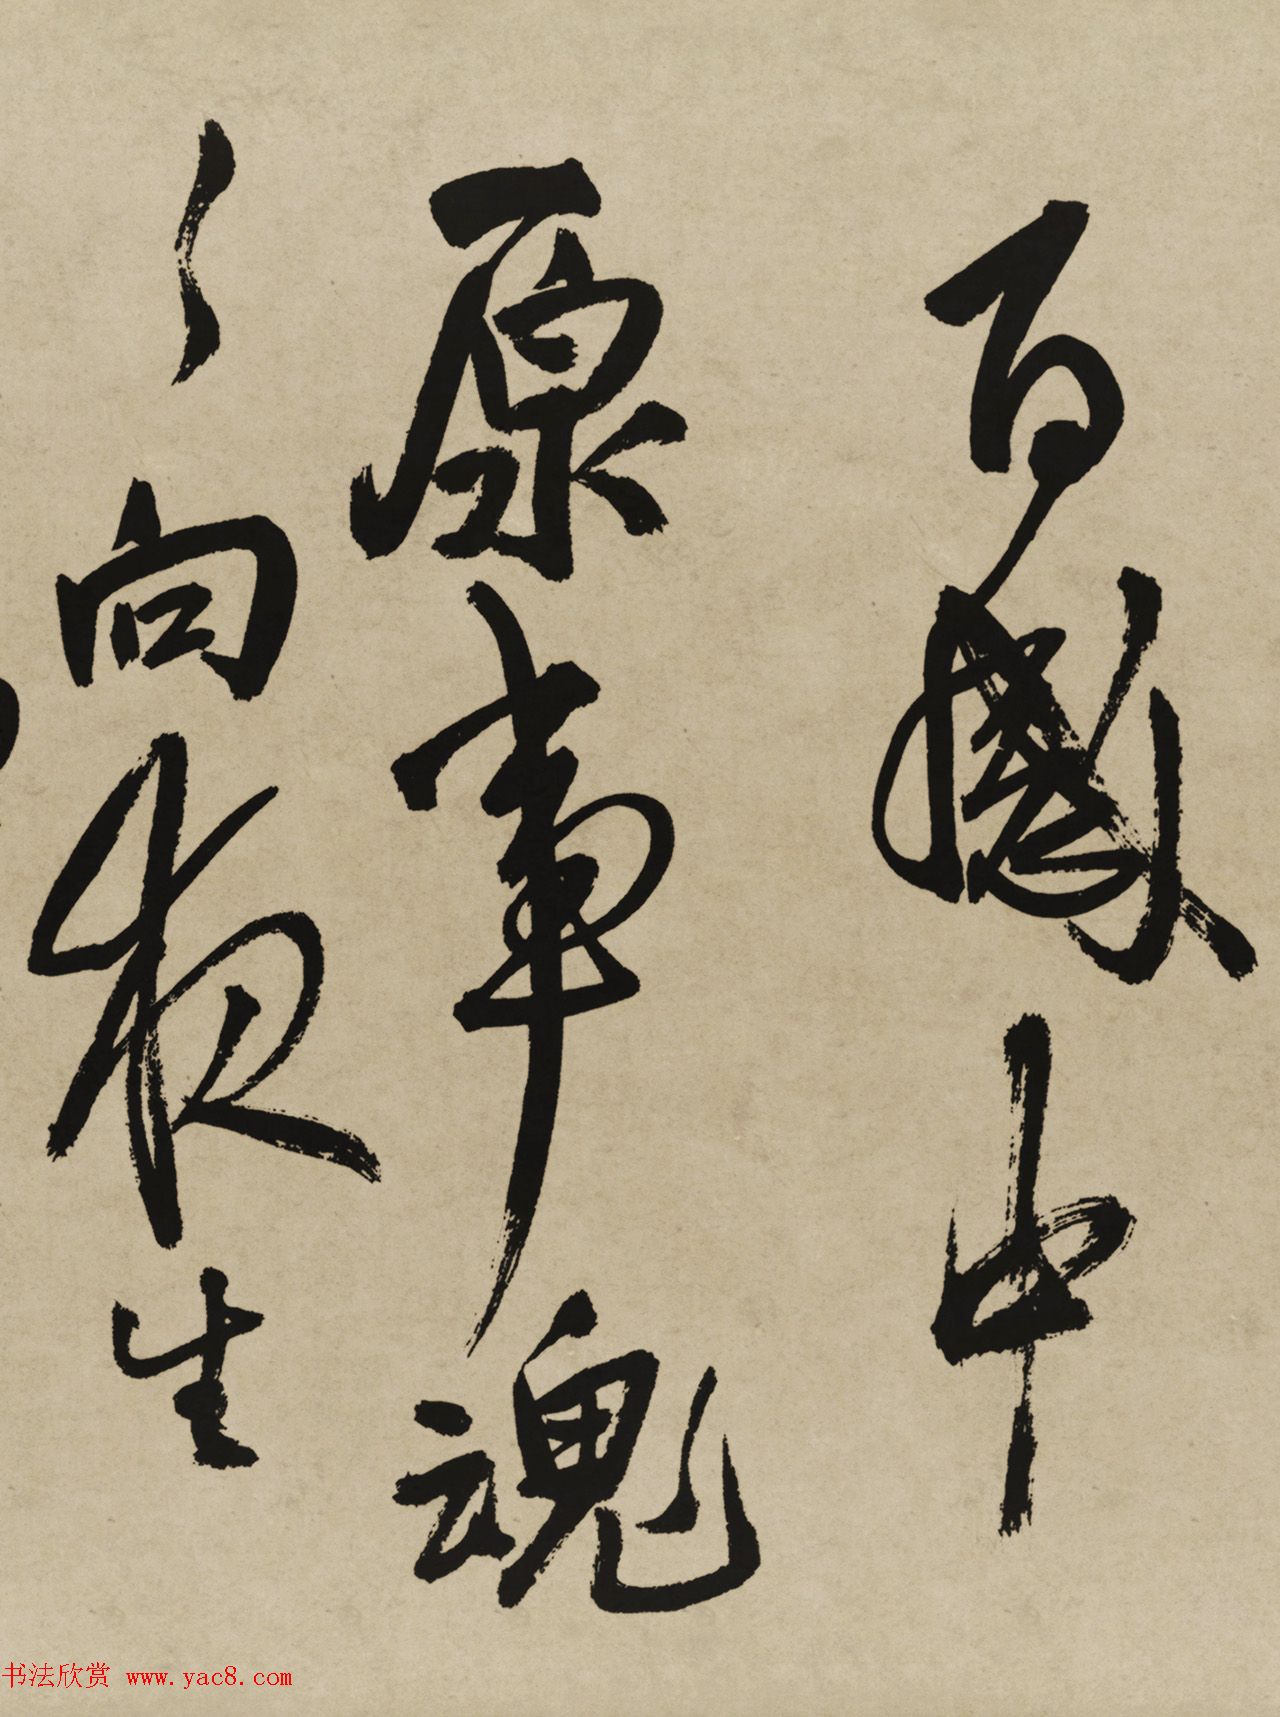 百中
原事魂
〻向夜生
书法欣赏 www.yac8.com